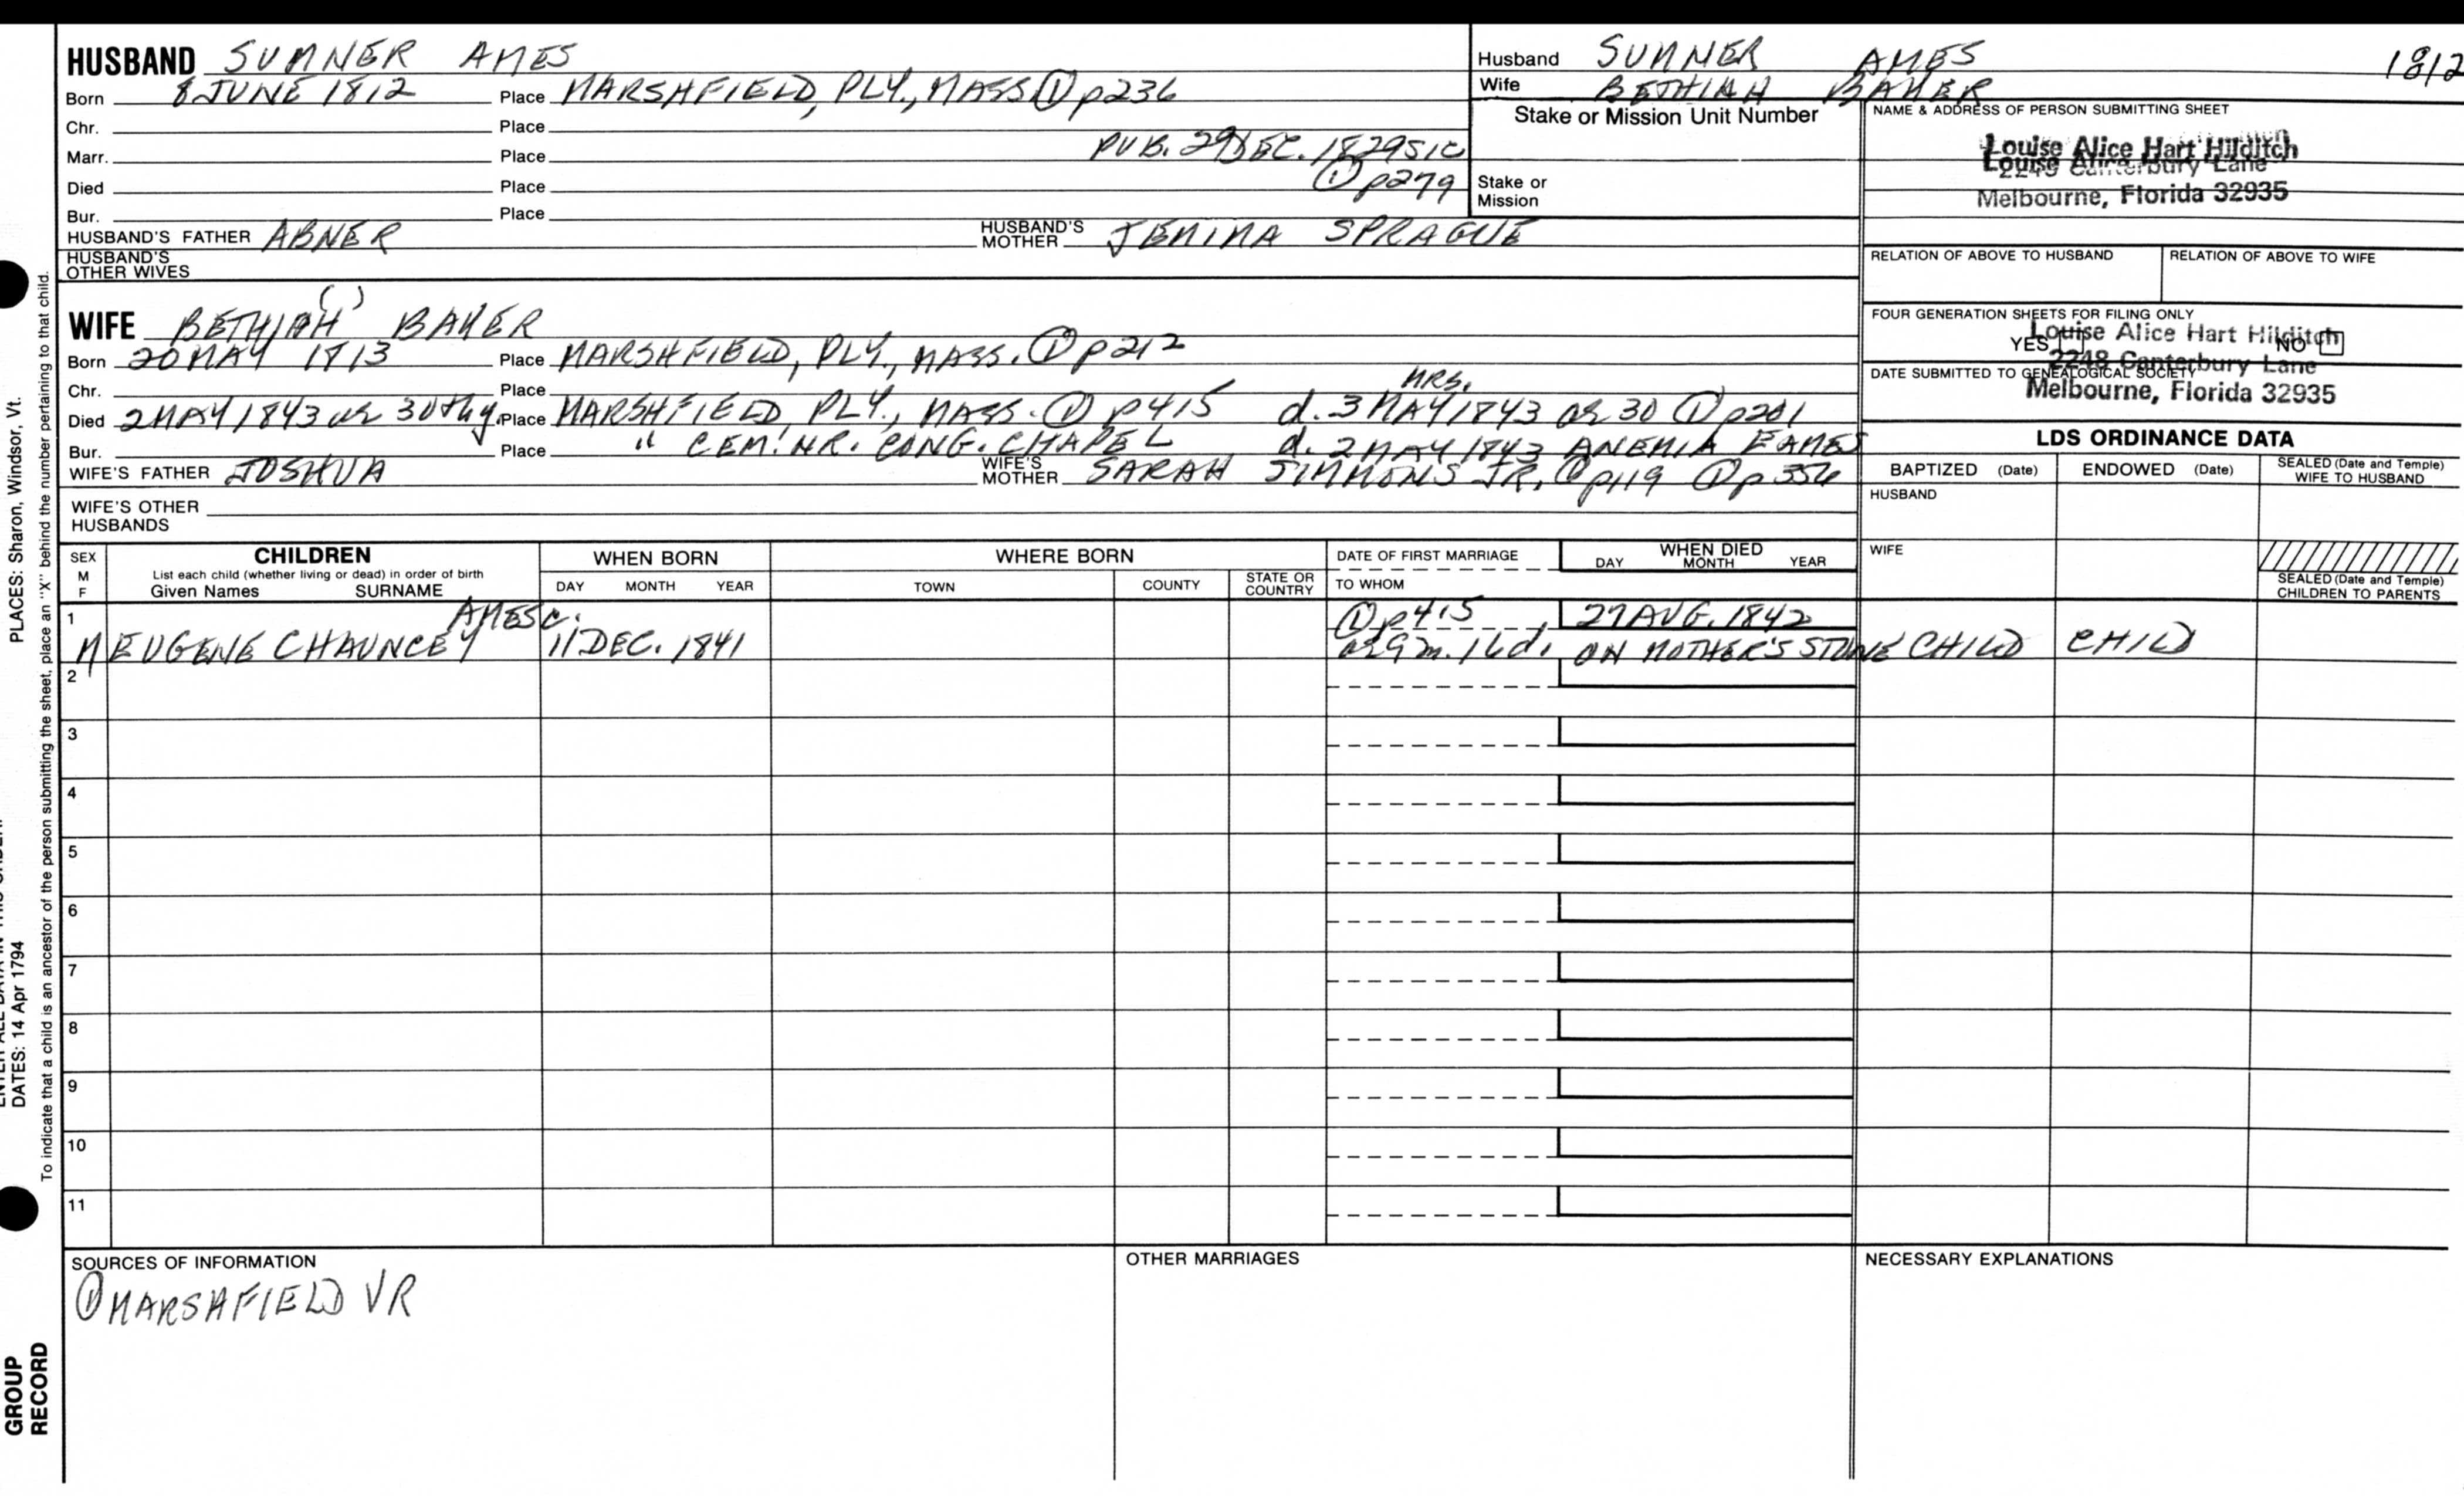 HUSBAND SUMNER AMES
Born 8 JUNE 1812 Place MARSHFIELD, PLY., MASS ① p236
Chr. Place
Marr. Place PUB. 29 DEC. 1829 SIC
Died Place ① p279
Bur. Place
HUSBAND'S FATHER ABNER HUSBAND'S MOTHER JEMIMA SPRAGUE
HUSBAND'S OTHER WIVES
Husband SUMNER AMES 1812
Wife BETHIAH BAKER
Stake or Mission Unit Number
Stake or Mission
NAME & ADDRESS OF PERSON SUBMITTING SHEET
Louise Alice Hart Hilditch
2248 Canterbury Lane
Melbourne, Florida 32935
RELATION OF ABOVE TO HUSBAND RELATION OF ABOVE TO WIFE
FOUR GENERATION SHEETS FOR FILING ONLY
YES NO
Louise Alice Hart Hilditch
2248 Canterbury Lane
DATE SUBMITTED TO GENEALOGICAL SOCIETY
Melbourne, Florida 32935
( )
WIFE BETHIAH BAKER
Born 20 MAY 1813 Place MARSHFIELD, PLY., MASS. ① p212
Chr. Place MRS.
Died 2 MAY 1843 ae 30th y. Place MARSHFIELD, PLY., MASS. ① p415 d. 3 MAY 1843 ae 30 ① p201
Bur. Place " CEM. NR. CONG. CHAPEL d. 2 MAY 1843 ANEMIA EAMES
WIFE'S FATHER JOSHUA WIFE'S MOTHER SARAH SIMMONS JR. ① p119 ① p356
WIFE'S OTHER HUSBANDS
LDS ORDINANCE DATA
BAPTIZED (Date) ENDOWED (Date) SEALED (Date and Temple) WIFE TO HUSBAND
HUSBAND
WIFE
SEALED (Date and Temple) CHILDREN TO PARENTS
SEX M F CHILDREN List each child (whether living or dead) in order of birth Given Names SURNAME
WHEN BORN DAY MONTH YEAR
WHERE BORN TOWN COUNTY STATE OR COUNTRY
DATE OF FIRST MARRIAGE TO WHOM
WHEN DIED DAY MONTH YEAR
1 AMES c. ① p415 27 AUG. 1842
M EUGENE CHAUNCEY 11 DEC. 1841 ae 9 m. 16 d. ON MOTHER'S STONE CHILD CHILD
2
3
4
5
6
7
8
9
10
11
SOURCES OF INFORMATION
① MARSHFIELD VR
OTHER MARRIAGES
NECESSARY EXPLANATIONS
PLACES: Sharon, Windsor, Vt.
DATES: 14 Apr 1794
To indicate that a child is an ancestor of the person submitting the sheet, place an "X" behind the number pertaining to that child.
GROUP
RECORD